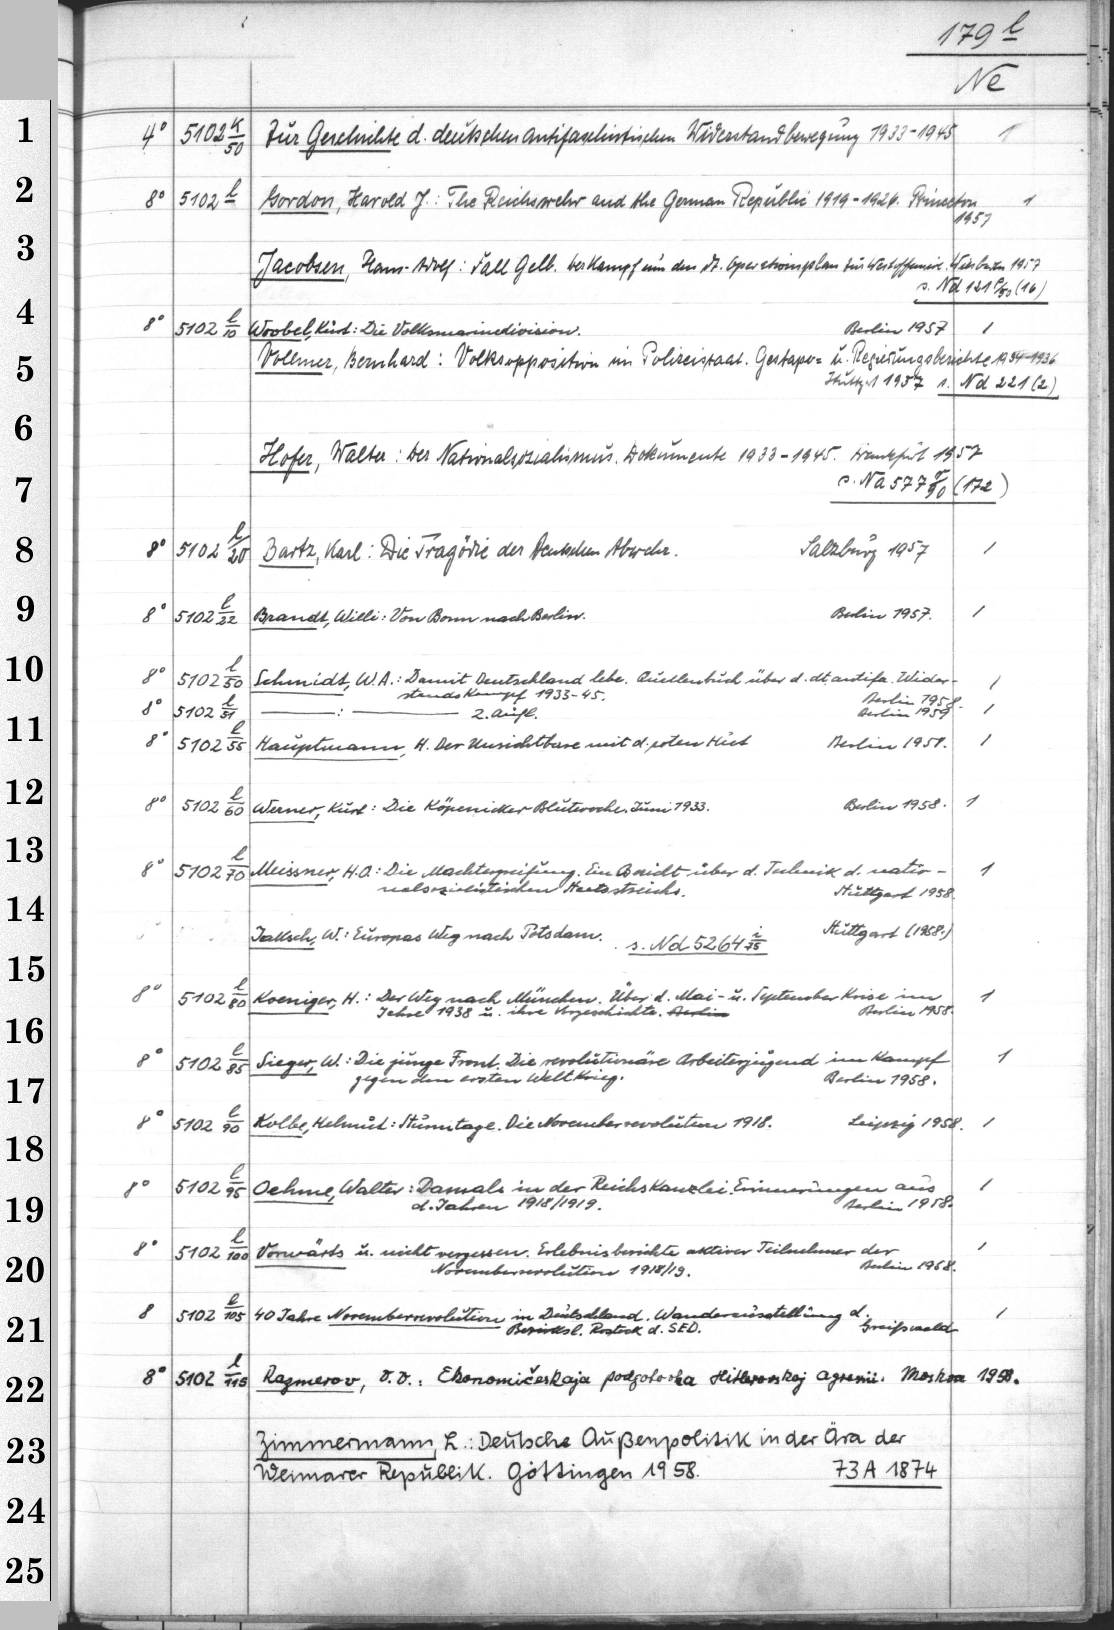 179 l
Ne
1 4° 5102 k/50 Zur Geschichte d. deutschen antifaschistischen Widerstandbewegung 1933-1945 1
2 8° 5102 l Gordon, Harold J.: The Reichswehr and the German Republic 1919-1926. Princeton 1
1957
3 Jacobsen, Hans-Adolf: Fall Gelb. Der Kampf um den dt. Operationsplan zur Westoffensive. Wiesbaden 1957
s. Nd 121 /50 (16)
4 8° 5102 l/10 Wrobel, Kurt: Die Volksmarinedivision. Berlin 1957 1
5 Vollmer, Bernhard: Volksopposition im Polizeistaat. Gestapo= u. Regierungsberichte 1934-1936
Stuttgt 1957 s. Nd 221 (2)
6 Hofer, Walter: Der Nationalsozialismus. Dokumente 1933-1945. Frankfurt 1957
7 s. Na 577 /90 (172)
8 8° 5102 l/20 Bartz, Karl: Die Tragödie der Deutschen Abwehr. Salzburg 1957 1
9 8° 5102 l/22 Brandt, Willi: Von Bonn nach Berlin. Berlin 1957. 1
10 8° 5102 l/50 Schmidt, W.A.: Damit Deutschland lebe. Quellenbuch über d. dt. antifa. Wider- 1
standskampf 1933-45. Berlin 1958.
8° 5102 l/51 ——— : ——— 2. Aufl. Berlin 1959 1
11 8° 5102 l/55 Hauptmann, H. Der Unsichtbare mit d. roten Hut Berlin 1958. 1
12 8° 5102 l/60 Werner, Kurt: Die Köpenicker Blutwoche. Juni 1933. Berlin 1958. 1
13 8° 5102 l/70 Meissner, H.O.: Die Machtergreifung. Ein Bericht über d. Technik d. natio- 1
nalsozialistischen Staatsstreichs. Stuttgart 1958.
14 Jaksch, W.: Europas Weg nach Potsdam. s. Nd 5264 i/75 Stuttgart (1958.)
15 8° 5102 l/80 Koeniger, H.: Der Weg nach München. Über d. Mai- u. September Krise im 1
Jahre 1938 u. ihre Vorgeschichte. Berlin Berlin 1958.
16 8° 5102 l/85 Sieger, W.: Die junge Front. Die revolutionäre Arbeiterjugend im Kampf 1
gegen den ersten Weltkrieg. Berlin 1958.
17 8° 5102 l/90 Kolbe, Helmut: Sturmtage. Die Novemberrevolution 1918. Leipzig 1958. 1
18
8° 5102 l/95 Oehme, Walter: Damals in der Reichskanzlei. Erinnerungen aus 1
19 d. Jahren 1918/1919. Berlin 1958.
8° 5102 l/100 Vorwärts u. nicht vergessen. Erlebnisberichte aktiver Teilnehmer der 1
20 Novemberrevolution 1918/19. Berlin 1958.
21 8 5102 l/105 40 Jahre Novemberrevolution in Deutschland. Wanderausstellung d. 1
Bezirksl. Rostock d. SED. Greifswald
22 8° 5102 l/115 Razmerov, V.V.: Ekonomičeskaja podgotovka Hitlerovskoj agressii. Moskva 1958.
23 Zimmermann, L.: Deutsche Außenpolitik in der Ära der
Weimarer Republik. Göttingen 1958. 73 A 1874
24
25